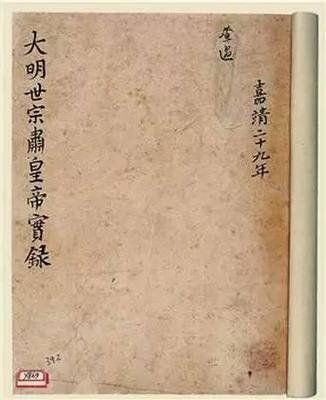 查過
嘉清二十九年
大明世宗肅皇帝實錄
392